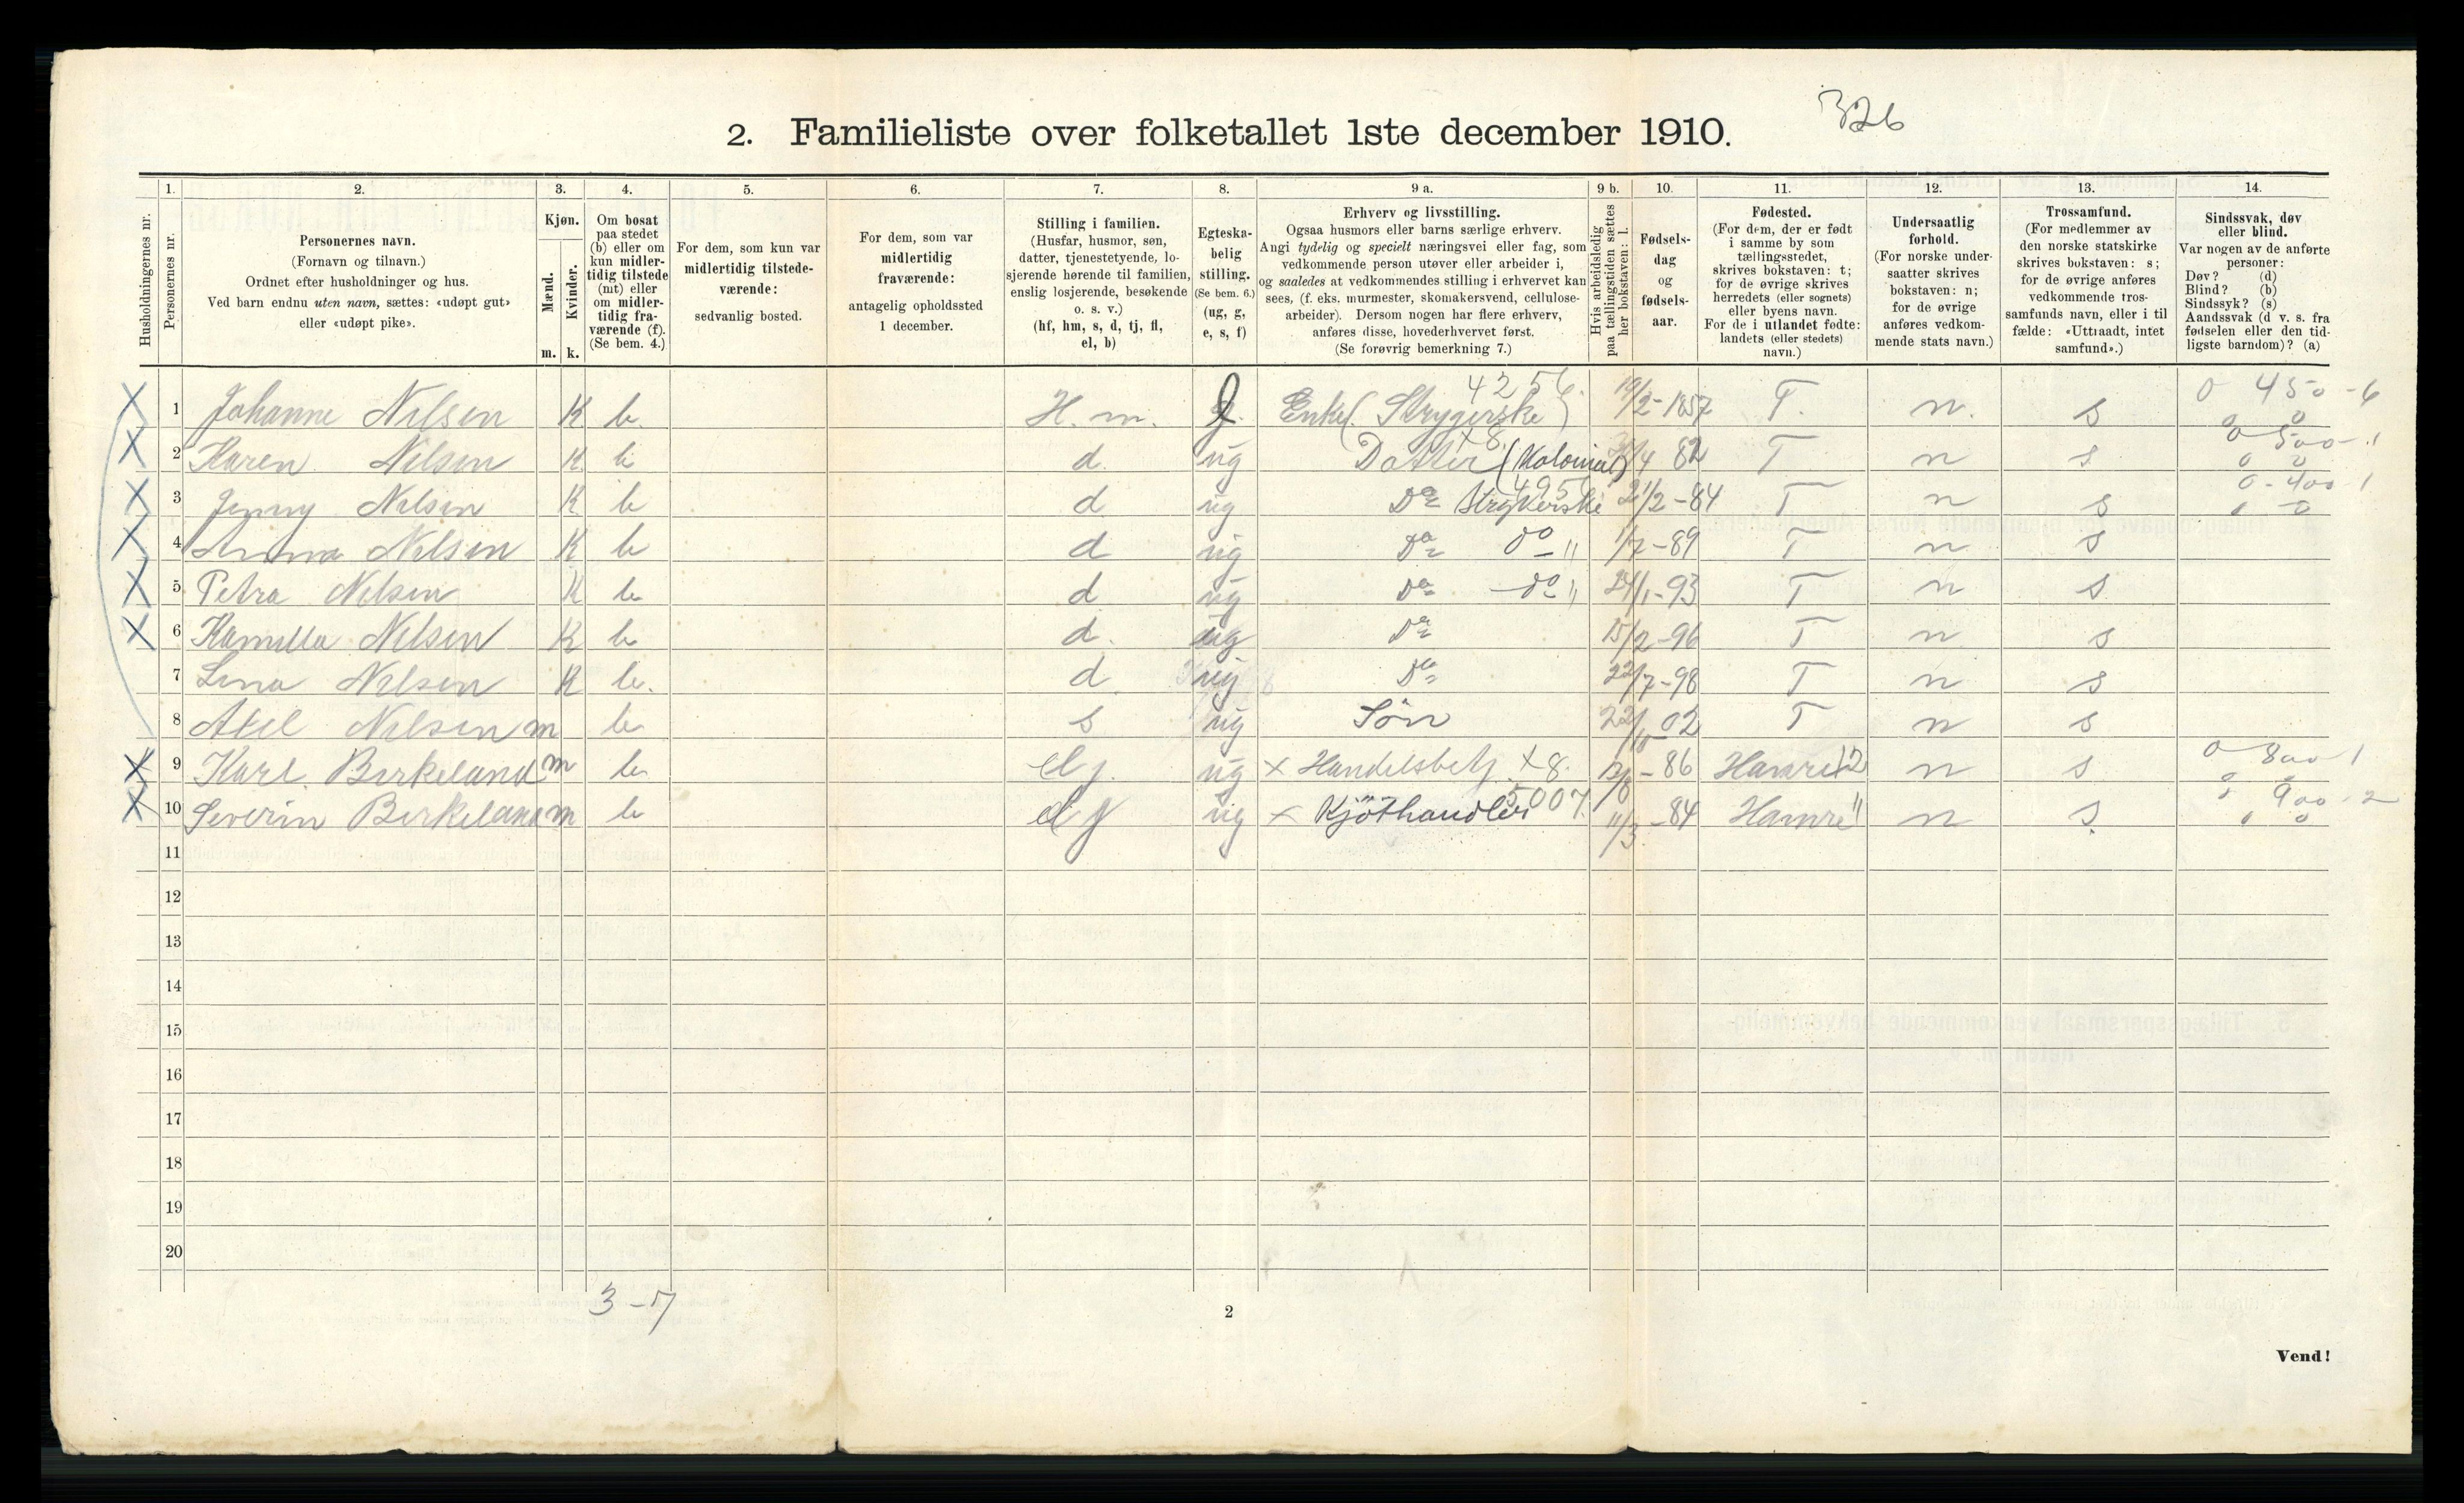 326
2. Familieliste over folketallet 1ste december 1910.
Husholdningernes nr.
1. Personernes nr.
2. Personernes navn. (Fornavn og tilnavn.) Ordnet efter husholdninger og hus. Ved barn endnu uten navn, sættes: «udøpt gut» eller «udøpt pike».
3. Kjøn. Mænd. m. Kvinder. k.
4. Om bosat paa stedet (b) eller om kun midlertidig tilstede (mt) eller om midlertidig fraværende (f). (Se bem. 4.)
5. For dem, som kun var midlertidig tilstedeværende: sedvanlig bosted.
6. For dem, som var midlertidig fraværende: antagelig opholdssted 1 december.
7. Stilling i familien. (Husfar, husmor, søn, datter, tjenestetyende, losjerende hørende til familien, enslig losjerende, besøkende o. s. v.) (hf, hm, s, d, tj, fl, el, b)
8. Egteskabelig stilling. (Se bem. 6.) (ug, g, e, s, f)
9 a. Erhverv og livsstilling. Ogsaa husmors eller barns særlige erhverv. Angi tydelig og specielt næringsvei eller fag, som vedkommende person utøver eller arbeider i, og saaledes at vedkommendes stilling i erhvervet kan sees, (f. eks. murmester, skomakersvend, cellulosearbeider). Dersom nogen har flere erhverv, anføres disse, hovederhvervet først. (Se forøvrig bemerkning 7.)
9 b. Hvis arbeidsledig paa tællingstiden sættes her bokstaven: l.
10. Fødselsdag og fødselsaar.
11. Fødested. (For dem, der er født i samme by som tællingsstedet, skrives bokstaven: t; for de øvrige skrives herredets (eller sognets) eller byens navn. For de i utlandet fødte: landets (eller stedets) navn.)
12. Undersaatlig forhold. (For norske undersaatter skrives bokstaven: n; for de øvrige anføres vedkommende stats navn.)
13. Trossamfund. (For medlemmer av den norske statskirke skrives bokstaven: s; for de øvrige anføres vedkommende trossamfunds navn, eller i tilfælde: «Uttraadt, intet samfund».)
14. Sindssvak, døv eller blind. Var nogen av de anførte personer: Døv? (d) Blind? (b) Sindssyk? (s) Aandssvak (d v. s. fra fødselen eller den tidligste barndom)? (a)
X 1 Johanne Nilsen K b. H. m. Enke (Strygerske) 4256. 19/2-1857 T. n. s 0 450-6
X 2 Karen Nilsen K b d. ug Datter (Kolonial) X8. /4 82 T n s 0 500-1
X 3 Jenny Nilsen K b d ug Do Strykerske 21/2-84 T n s 0-400-1
X 4 Anna Nilsen K b d ug Do do " 1/7-89 T n s
X 5 Petra Nilsen K b d ug Do - do " 24/1-93 T n s
X 6 Kamilla Nilsen K b d. ug Do 15/2-96 T n s
7 Lina Nilsen K b. d ug Do 22/7-98 T n s
8 Axel Nilsen m b s ug Søn 22/10 02 T n s
X 9 Karl Birkeland m b el j. ug x Handelsbetj. X8. 12/8-86 Hamre 12 n s 0 800-1
X 10 Severin Birkeland m b el j ug x Kjöthandler 5007. 11/3-84 Hamre " n s 900-2
11
12
13
14
15
16
17
18
19
20
3-7
2
Vend!